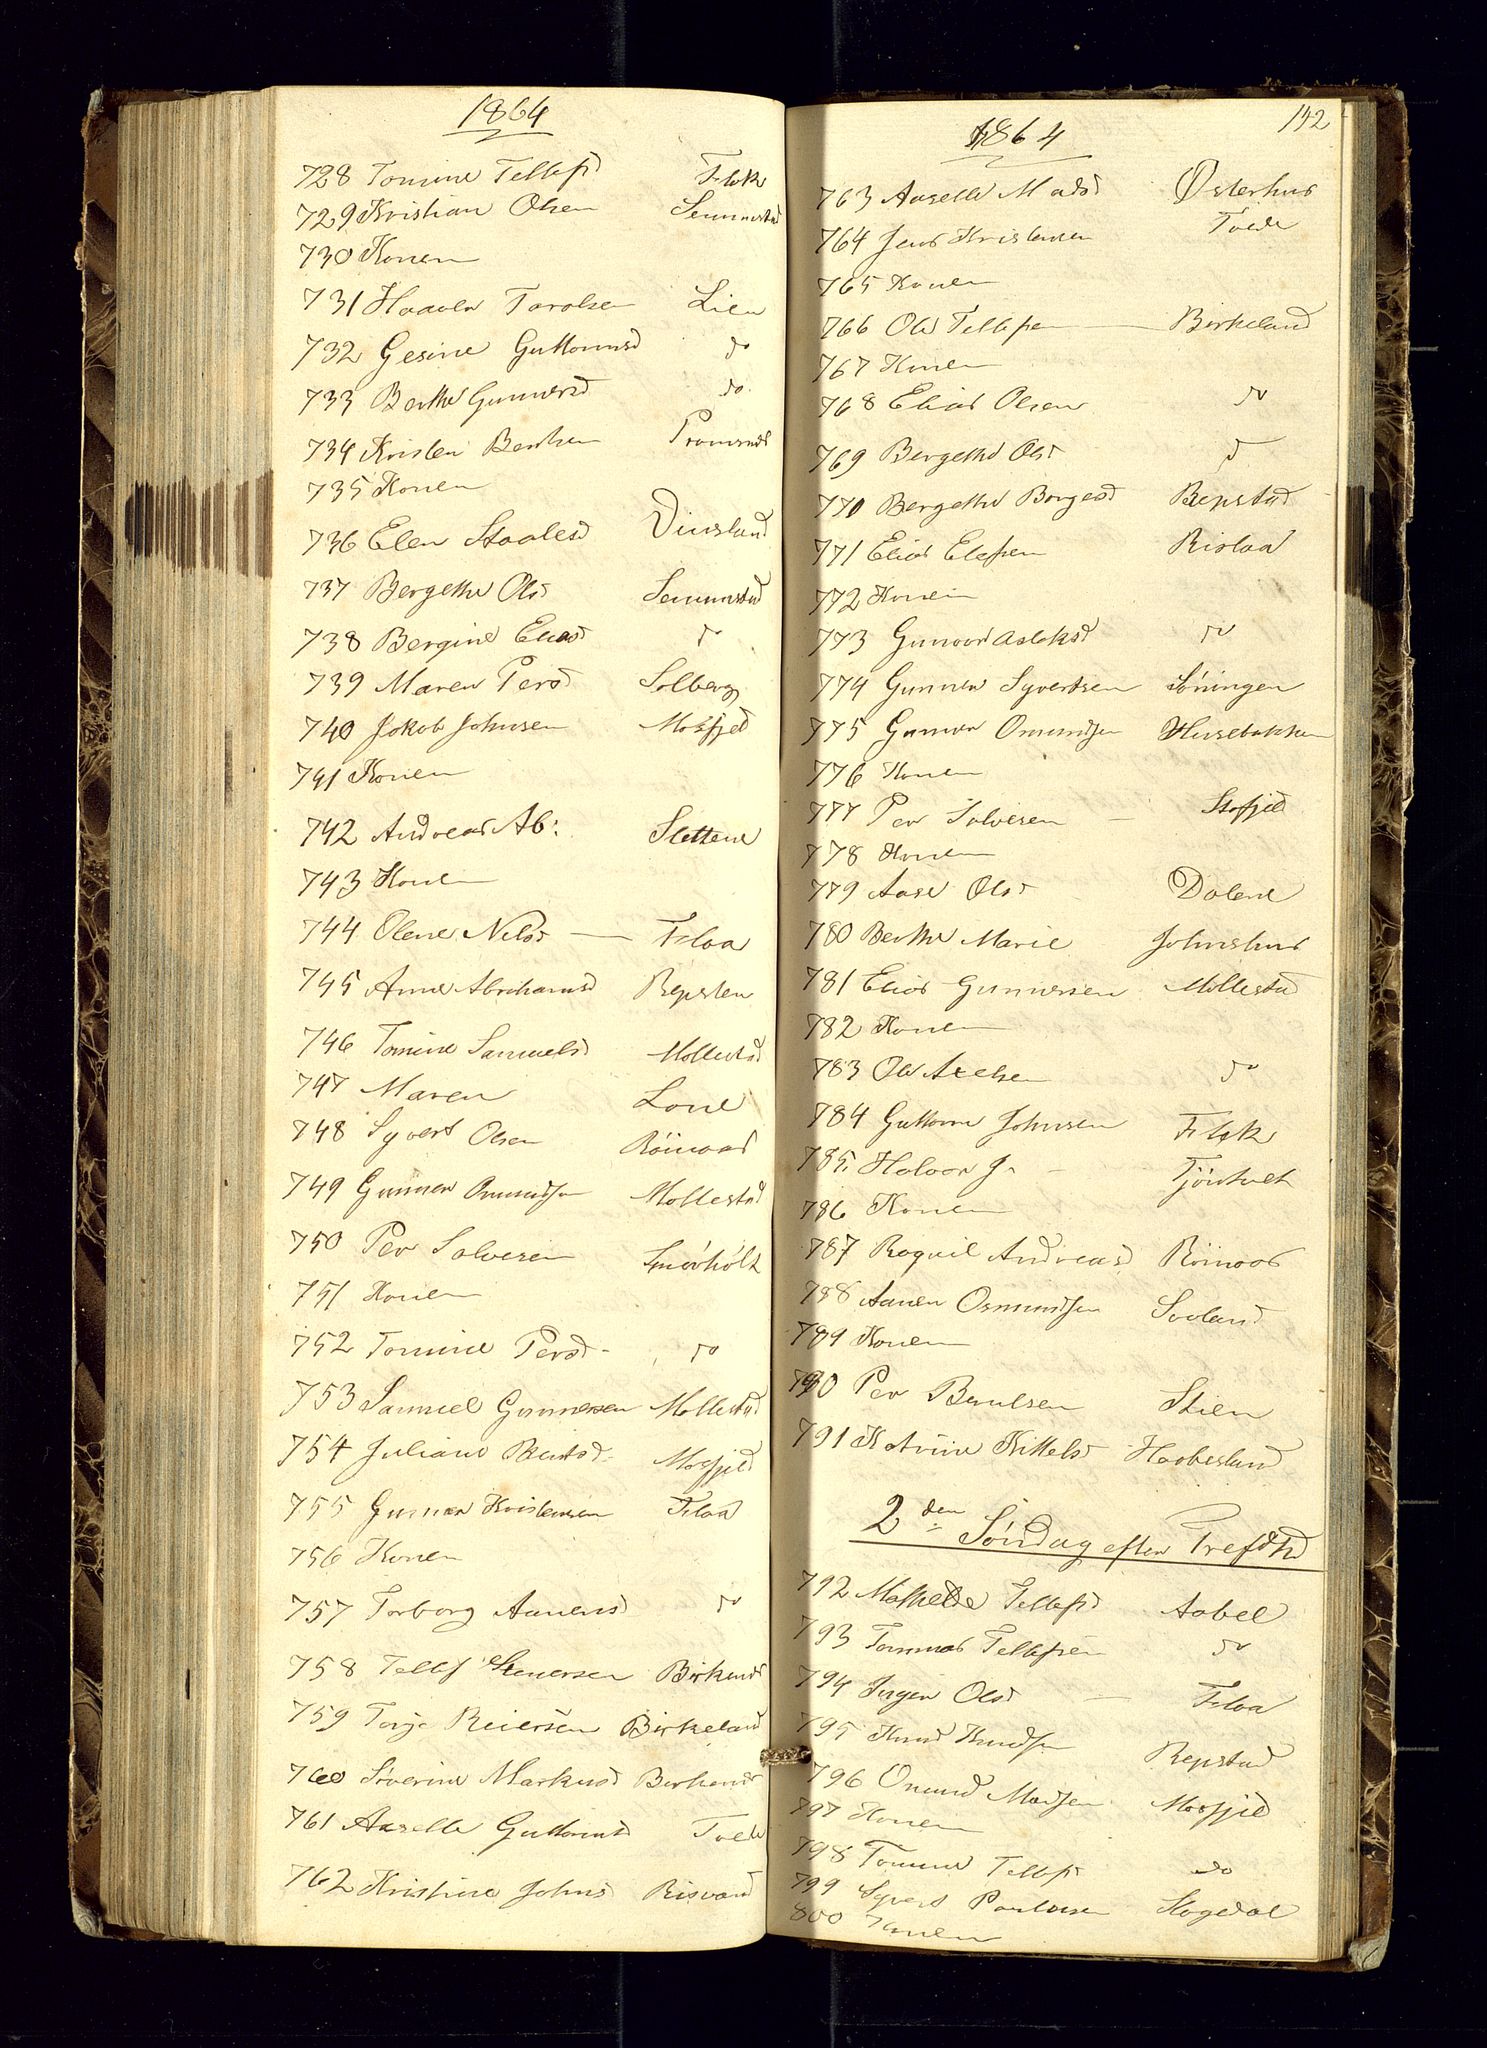 1864
728 Tomine Tellefsd Flak
729 Kristian Olsen Semmestad
730 Konen
731 Haaver Tarolsen Lien
732 Gesine Guttormsd do
733 Berthe Gunnersd do
734 Kristen Bentsen
735 Konen
736 Elen Staalesd Dinesland
737 Bergethe Olsd Semmestad
738 Bergine Eliasd do
739 Maren Persd Solberg
740 Jakob Johnsen Mosfjed
741 Konen
742 Andreas Ab: Slettene
743 Konen
744 Olene Nilsd — Flaa
745 Anne Abrahamsd Repsten
746 Tomine Samuelsd Mollestad
747 Maren Lone
748 Syvert Olsen Röinaas
749 Gunner Omundsen Mollestad
750 Per Salvesen Smörhölt
751 Konen
752 Tomine Persd - do
753 Samuel Gunnersen Mollestad
754 Juliane Bentsd Mosfjeld
755 Gunner Kristensen Flaa
756 Konen
757 Torborg Aanensd do
758 Tellef Gunersen Birkenes
759 Torje Reiersen Birkeland
760 Severine Markusd Birkenes
761 Aaselle Guttormsd Tvede
762 Kristine Johnsd Risvand
142
1864
763 Aaselle Madsd Østerhus
764 Jens Kristensen Tvede
765 Konen
766 Ole Tellefsen — Birkeland
767 Konen
768 Elias Olsen do
769 Bergethe Olsd d
770 Bergethe Borgesd Repstad
771 Elias Elefsen Rislaa
772 Konen
773 Gunvor Aslaksd do
774 Gunner Syvertsen Söningen
775 Gunner Omundsen Husebakken
776 Konen
777 Per Salvesen — Stofjeld
778 Konen
779 Aase Olsd Dalene
780 Berthe Marie Johnshus
781 Elias Gunnersen Mollestad
782 Konen
783 Ole Axelsen do
784 Guttorm Johnsen Flak
785. Halvor J. - Tjönhelt
786 Konen
787 Raquil Andreasd Röinaas
788 Aanen Osmundsen Soeland
789 Konen
790 Per Berulsen Stien
791 Katrine Kittelsd Haabesland
2den Söndag efter Trefdhd
792 Mathelde Tellefsd Aabel
793 Tommas Tellefsen do
794 Inger Olsd — Flaa
795 Knud Knudsen Repstad
796 Omund Madsen Mosfjeld
797 Konen
798 Tomine Tellefsd do
799 Syvert Paulsen Stegedal
800 Konen